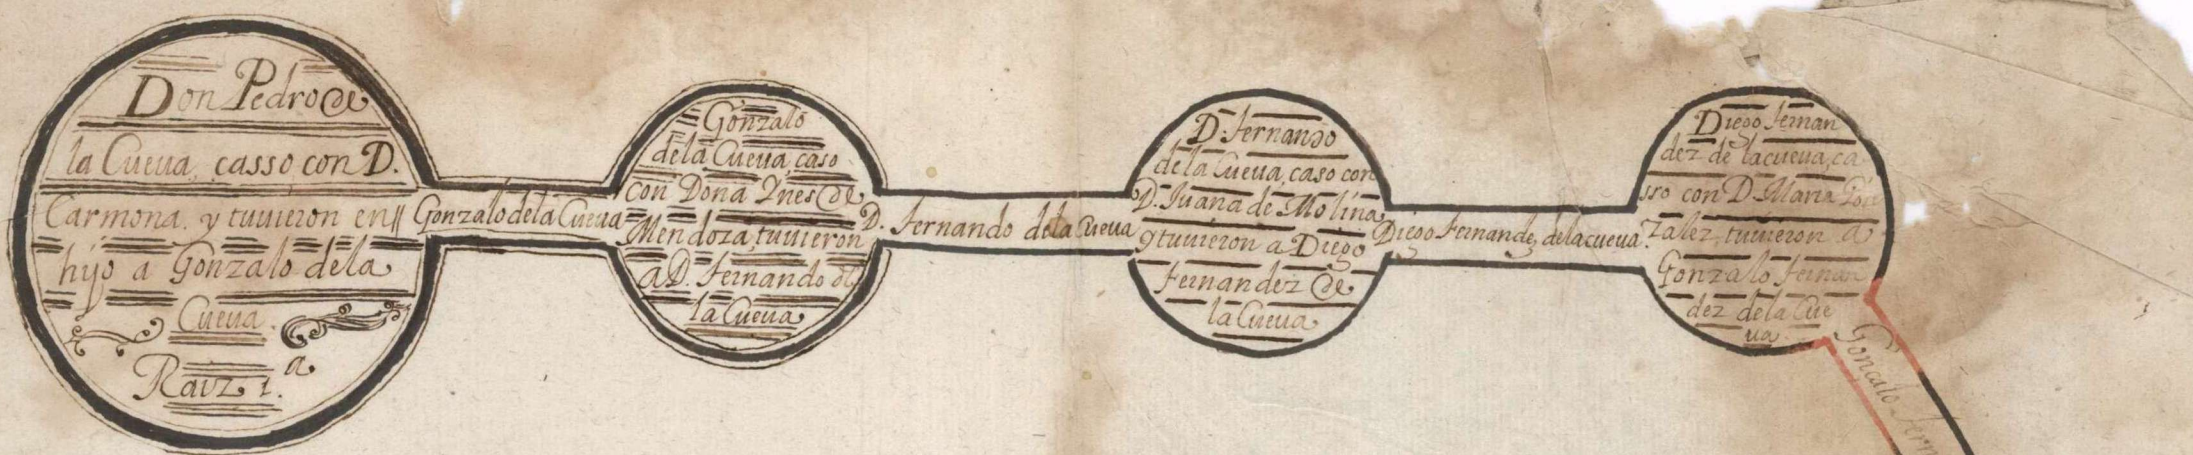 Don Pedro de
la Cueua, casso con D.
Carmona. y tuuieron en
hijo a Gonzalo dela
Cueua.
Raiz 1.ª
Gonzalo dela Cueua
Gonzalo
dela Cueua, caso
con Dona Ynes de
Mendoza, tuuieron
a D. fernando de
la Cueua
D. fernando dela Cueua
D. fernando
de la Cueua, caso con
D. Juana de Molina
y tuuieron a Diego
fernandez de
la Cueua
Diego fernandez delacueua
Diego fernan
dez de lacueua, ca
sso con D. Maria Gon
zalez, tuuieron a
Gonzalo fernan
dez dela Cue
ua
Goncalo fern